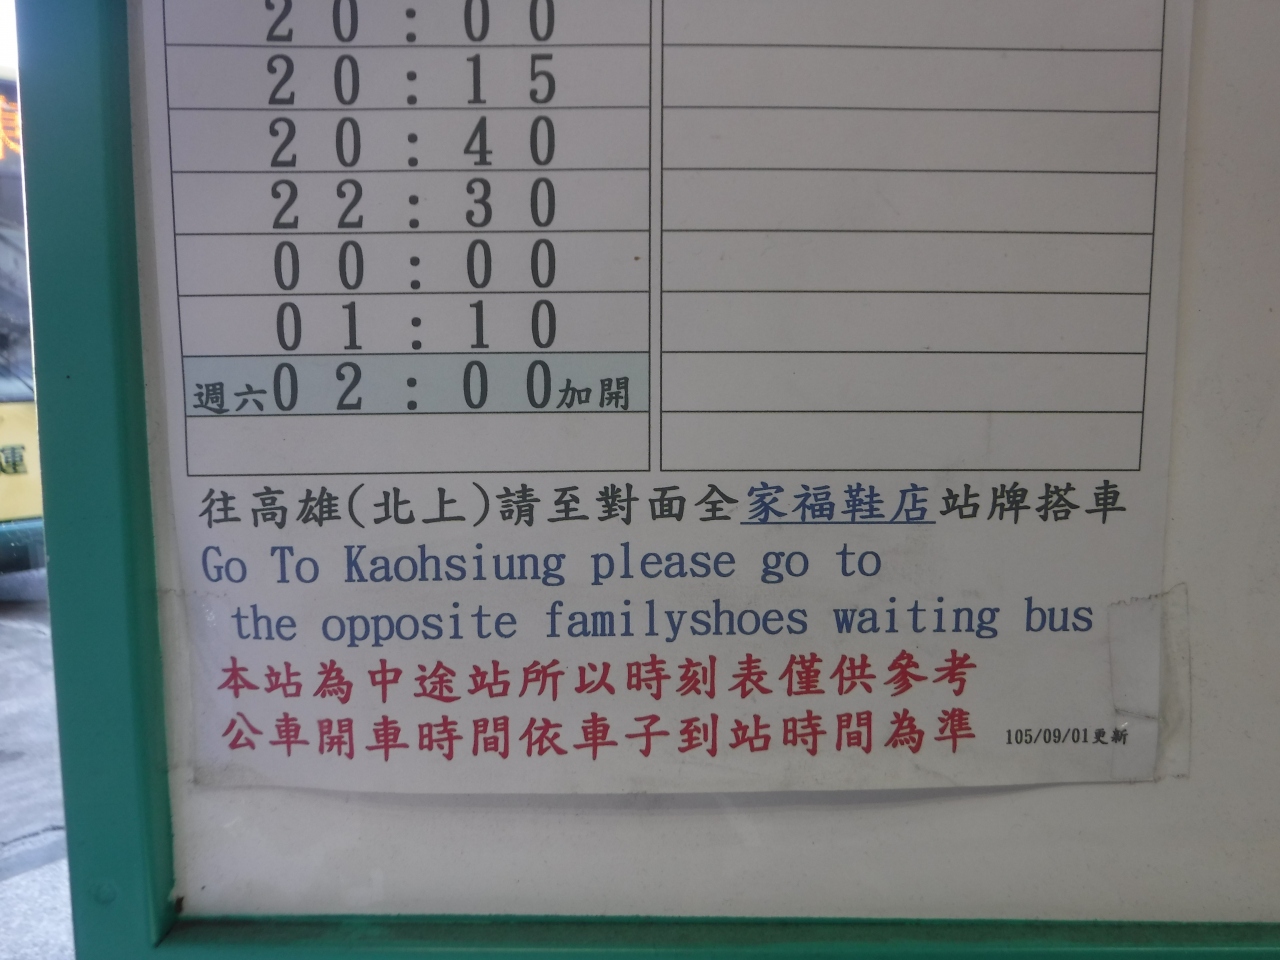 20:00
20:15
20:40
22:30
00:00
01:10
週六02:00加開
往高雄(北上)請至對面全家福鞋店站牌搭車
Go To Kaohsiung please go to
the opposite familyshoes waiting bus
本站為中途站所以時刻表僅供參考
公車開車時間依車子到站時間為準
105/09/01更新
運